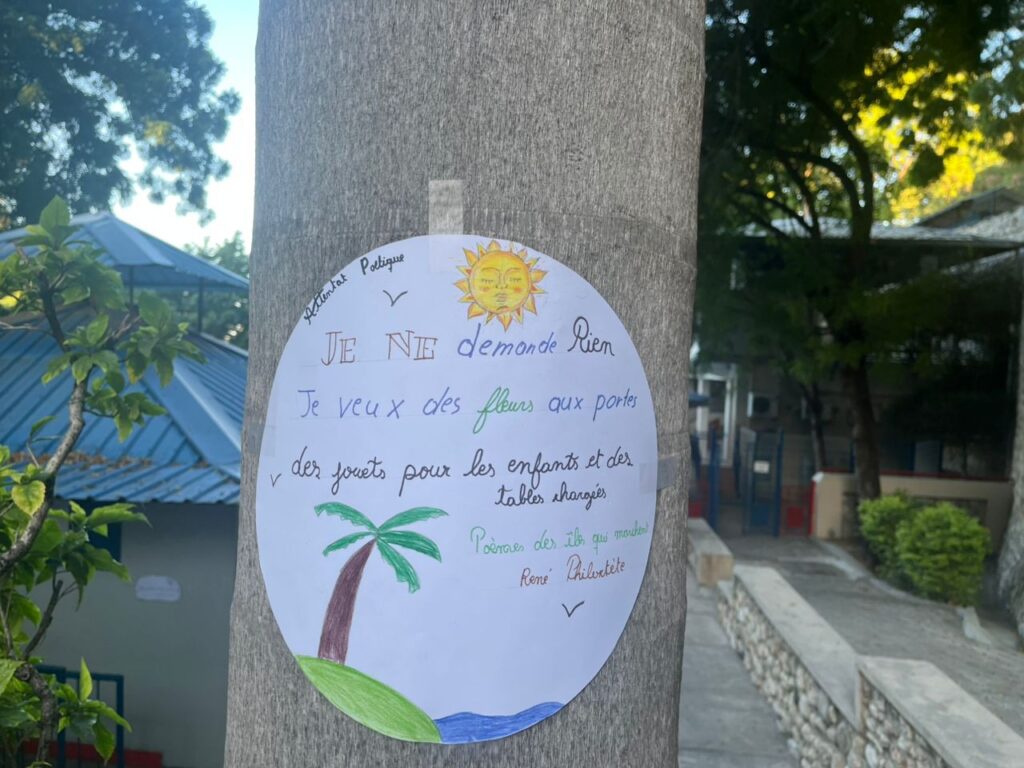 Attentat Poétique
JE NE demande Rien
Je veux des fleurs aux portes
des jouets pour les enfants et des
tables chargés
Poèmes des îles qui marchent
René Philoctète